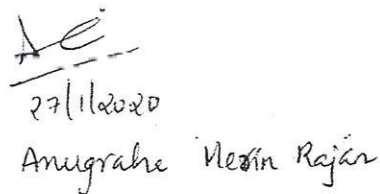 27/1/2020
Anugrahe Merin Rajan